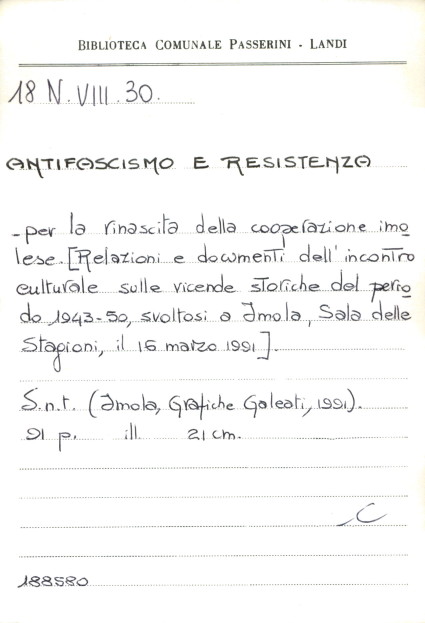 BIBLIOTECA COMUNALE PASSERINI - LANDI
18 N. VIII. 30.
ANTIFASCISMO E RESISTENZA
- per la rinascita della cooperazione imo
lese. [Relazioni e documenti dell'incontro
culturale sulle vicende storiche del perio
do 1943-50, svoltosi a Imola, Sala delle
Stagioni, il 16 marzo 1991].
S.n.t. (Imola, Grafiche Galeati, 1991).
91 p. ill. 21 cm.
C
188580